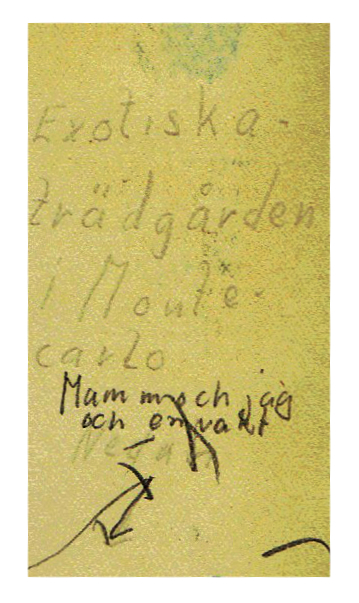 Exotiska-
trädgården
i Monte-
carlo
Mamma och jag
och en vakt